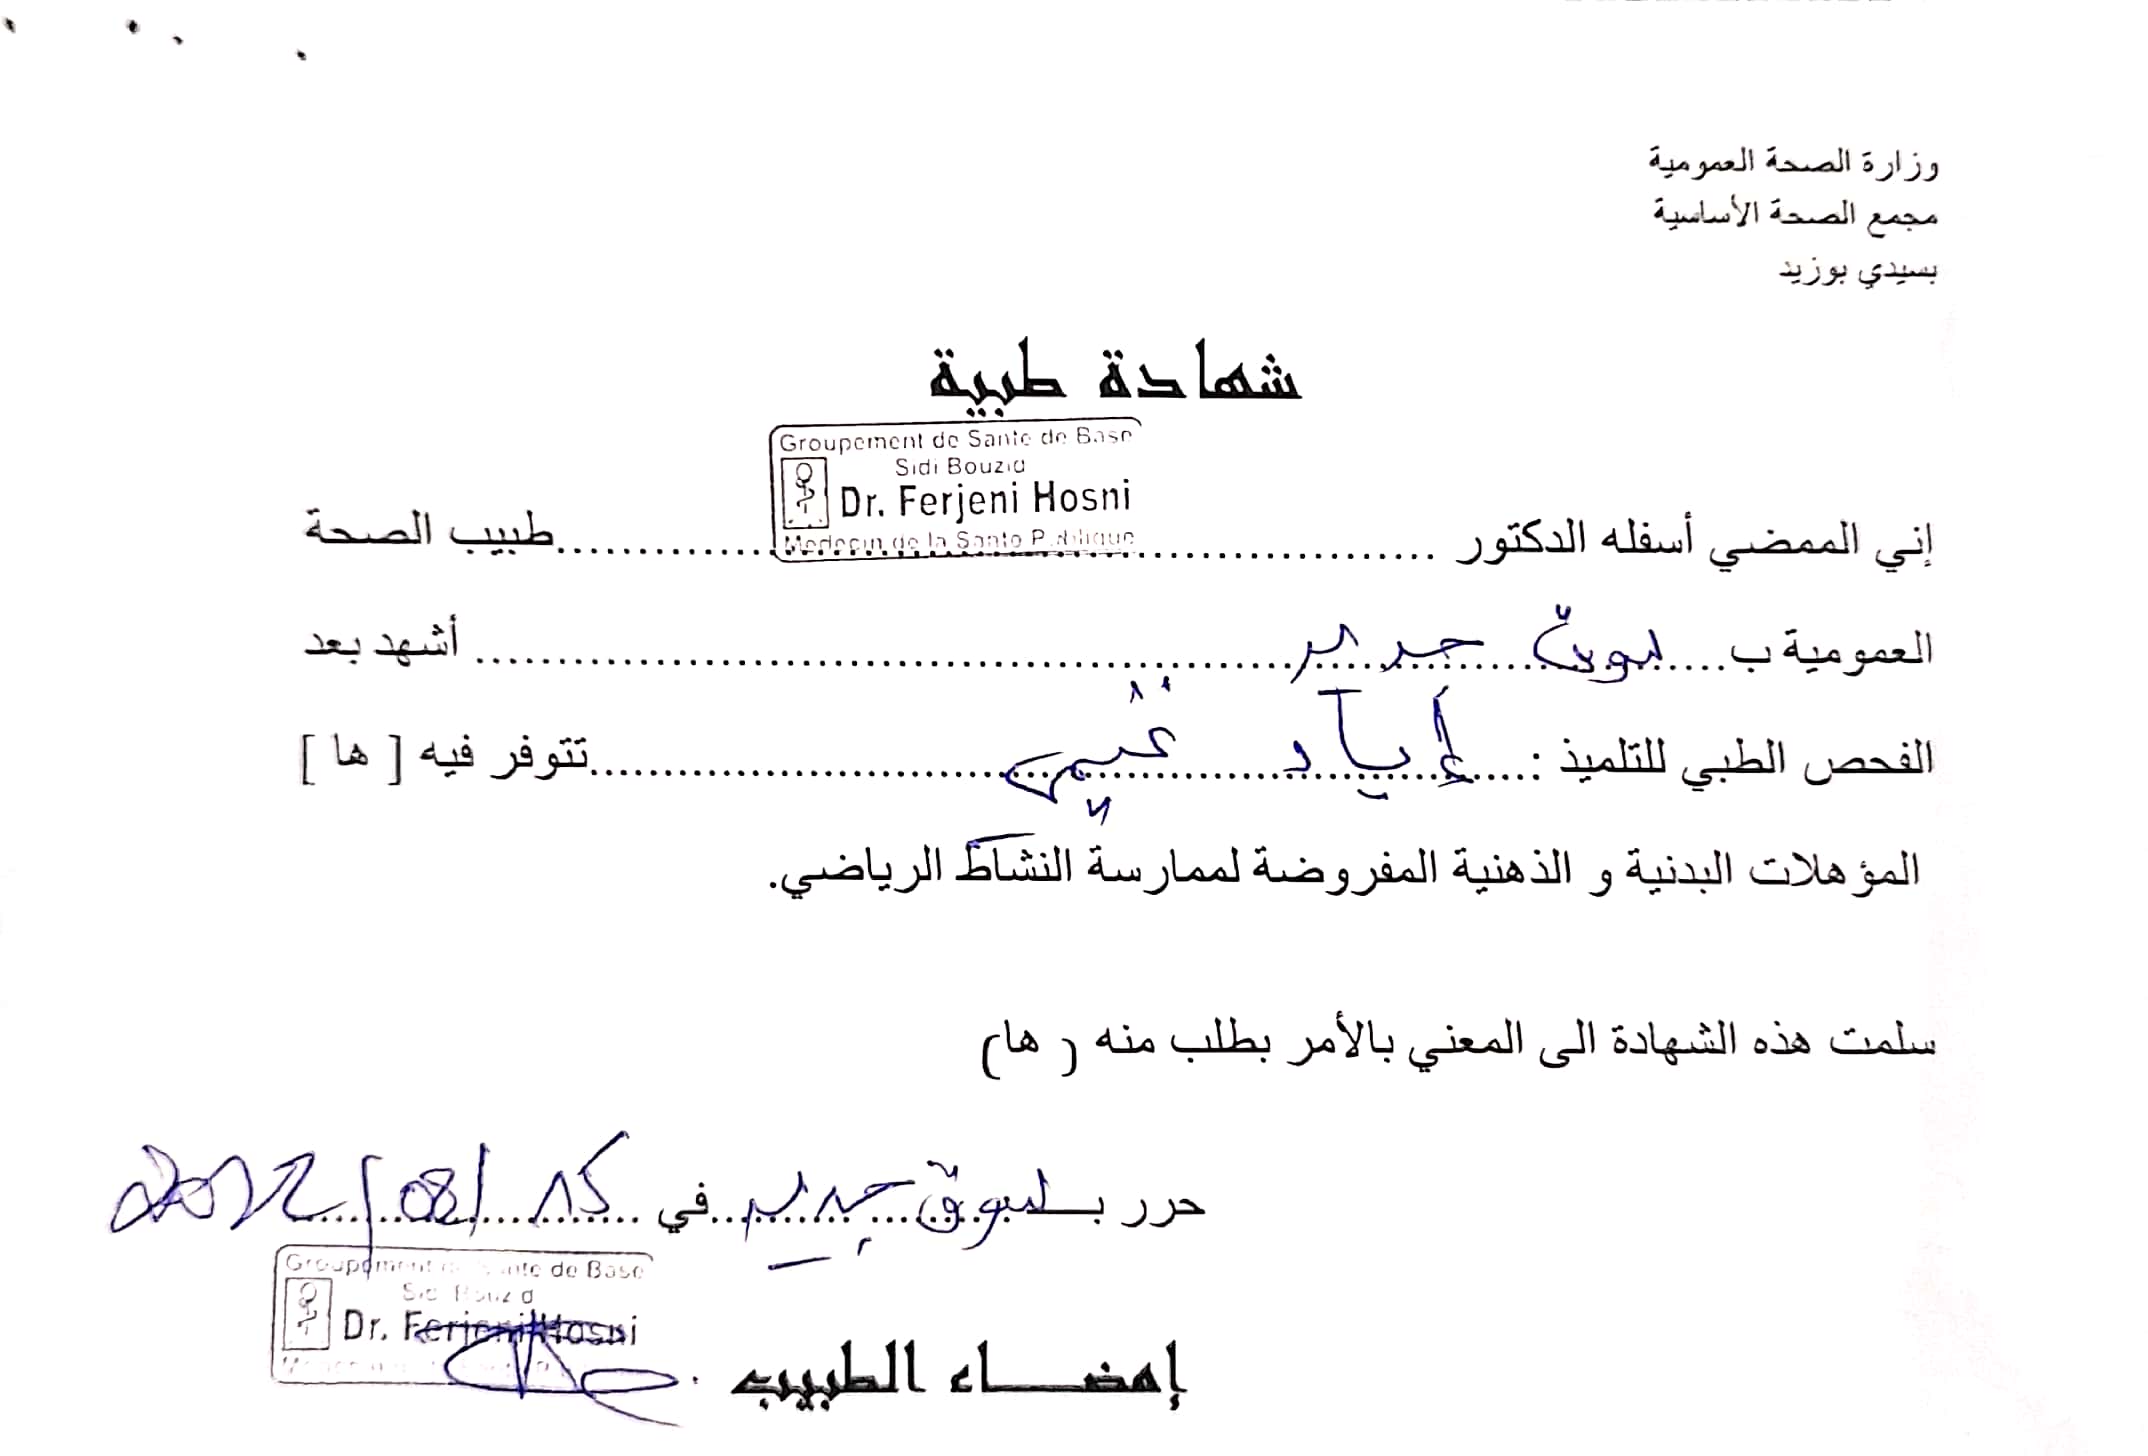 وزارة الصحة العمومية
مجمع الصحة الأساسية
بسيدي بوزيد
شهادة طبية
Groupement de Sante de Base
Sidi Bouzid
Dr. Ferjeni Hosni
Medecin de la Sante Publique
إني الممضي أسفله الدكتور ........ طبيب الصحة
العمومية ب.... سوق جديد ........ أشهد بعد
الفحص الطبي للتلميذ : إياد ........ تتوفر فيه [ ها ]
المؤهلات البدنية و الذهنية المفروضة لممارسة النشاط الرياضي.
سلمت هذه الشهادة الى المعني بالأمر بطلب منه ( ها)
حرر بـسوق جديد في 15/08/2022
Groupement de Sante de Base
Sidi Bouzid
Dr. Ferjeni Hosni
إمضاء الطبيب